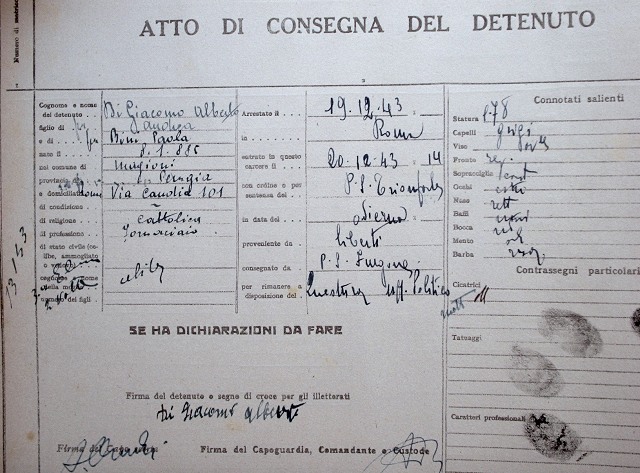 Numero di matricola
ATTO DI CONSEGNA DEL DETENUTO
1
2
Cognome e nome
del detenuto Di Giacomo Alberto
figlio di Andrea
e di Bini Paola
nato il 8.1.885
nel comune di Magioni
provincia Perugia
e domiciliato Roma Via Candia 101
di condizione
di religione Cattolica
di professione Fornaciaio
di stato civile (ce-
libe, ammogliato
celibe
cognome
numero dei figli
Arrestato il 19.12.43
in Roma
entrato in questo
carcere il 20.12.43 14
con ordine o per
sentenza del P.S. Trionfale
in data del odierna
proveniente da libertà
consegnato da P.S.
per rimanere a
disposizione del Questura Uff. Politico
Connotati salienti
Statura 1.78
Capelli grigi
Viso
Fronte reg.
Sopracciglia cast
Occhi
Naso rett
Baffi
Bocca
Mento
Barba
Contrassegni particolari
Cicatrici
Tatuaggi
Caratteri professionali
SE HA DICHIARAZIONI DA FARE
Firma del detenuto o segno di croce per gli illetterati
Di Giacomo Alberto
Firma del
Firma del Capoguardia, Comandante o Custode